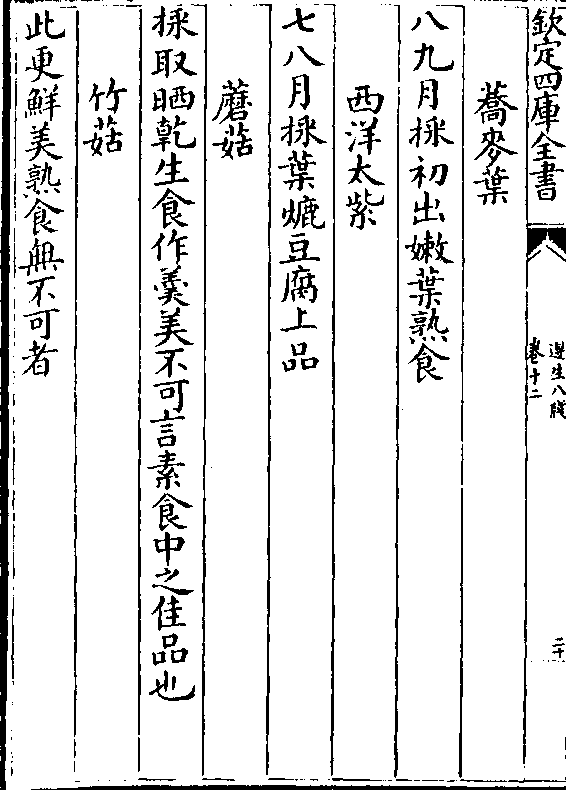 欽定四庫全書
遵生八牋
卷十二
二十
蕎麥葉
八九月採初出嫩葉熟食
西洋太紫
七八月採葉爊豆腐上品
蘑菇
採取晒乾生食作羹美不可言素食中之佳品也
竹菇
此更鮮美熟食無不可者